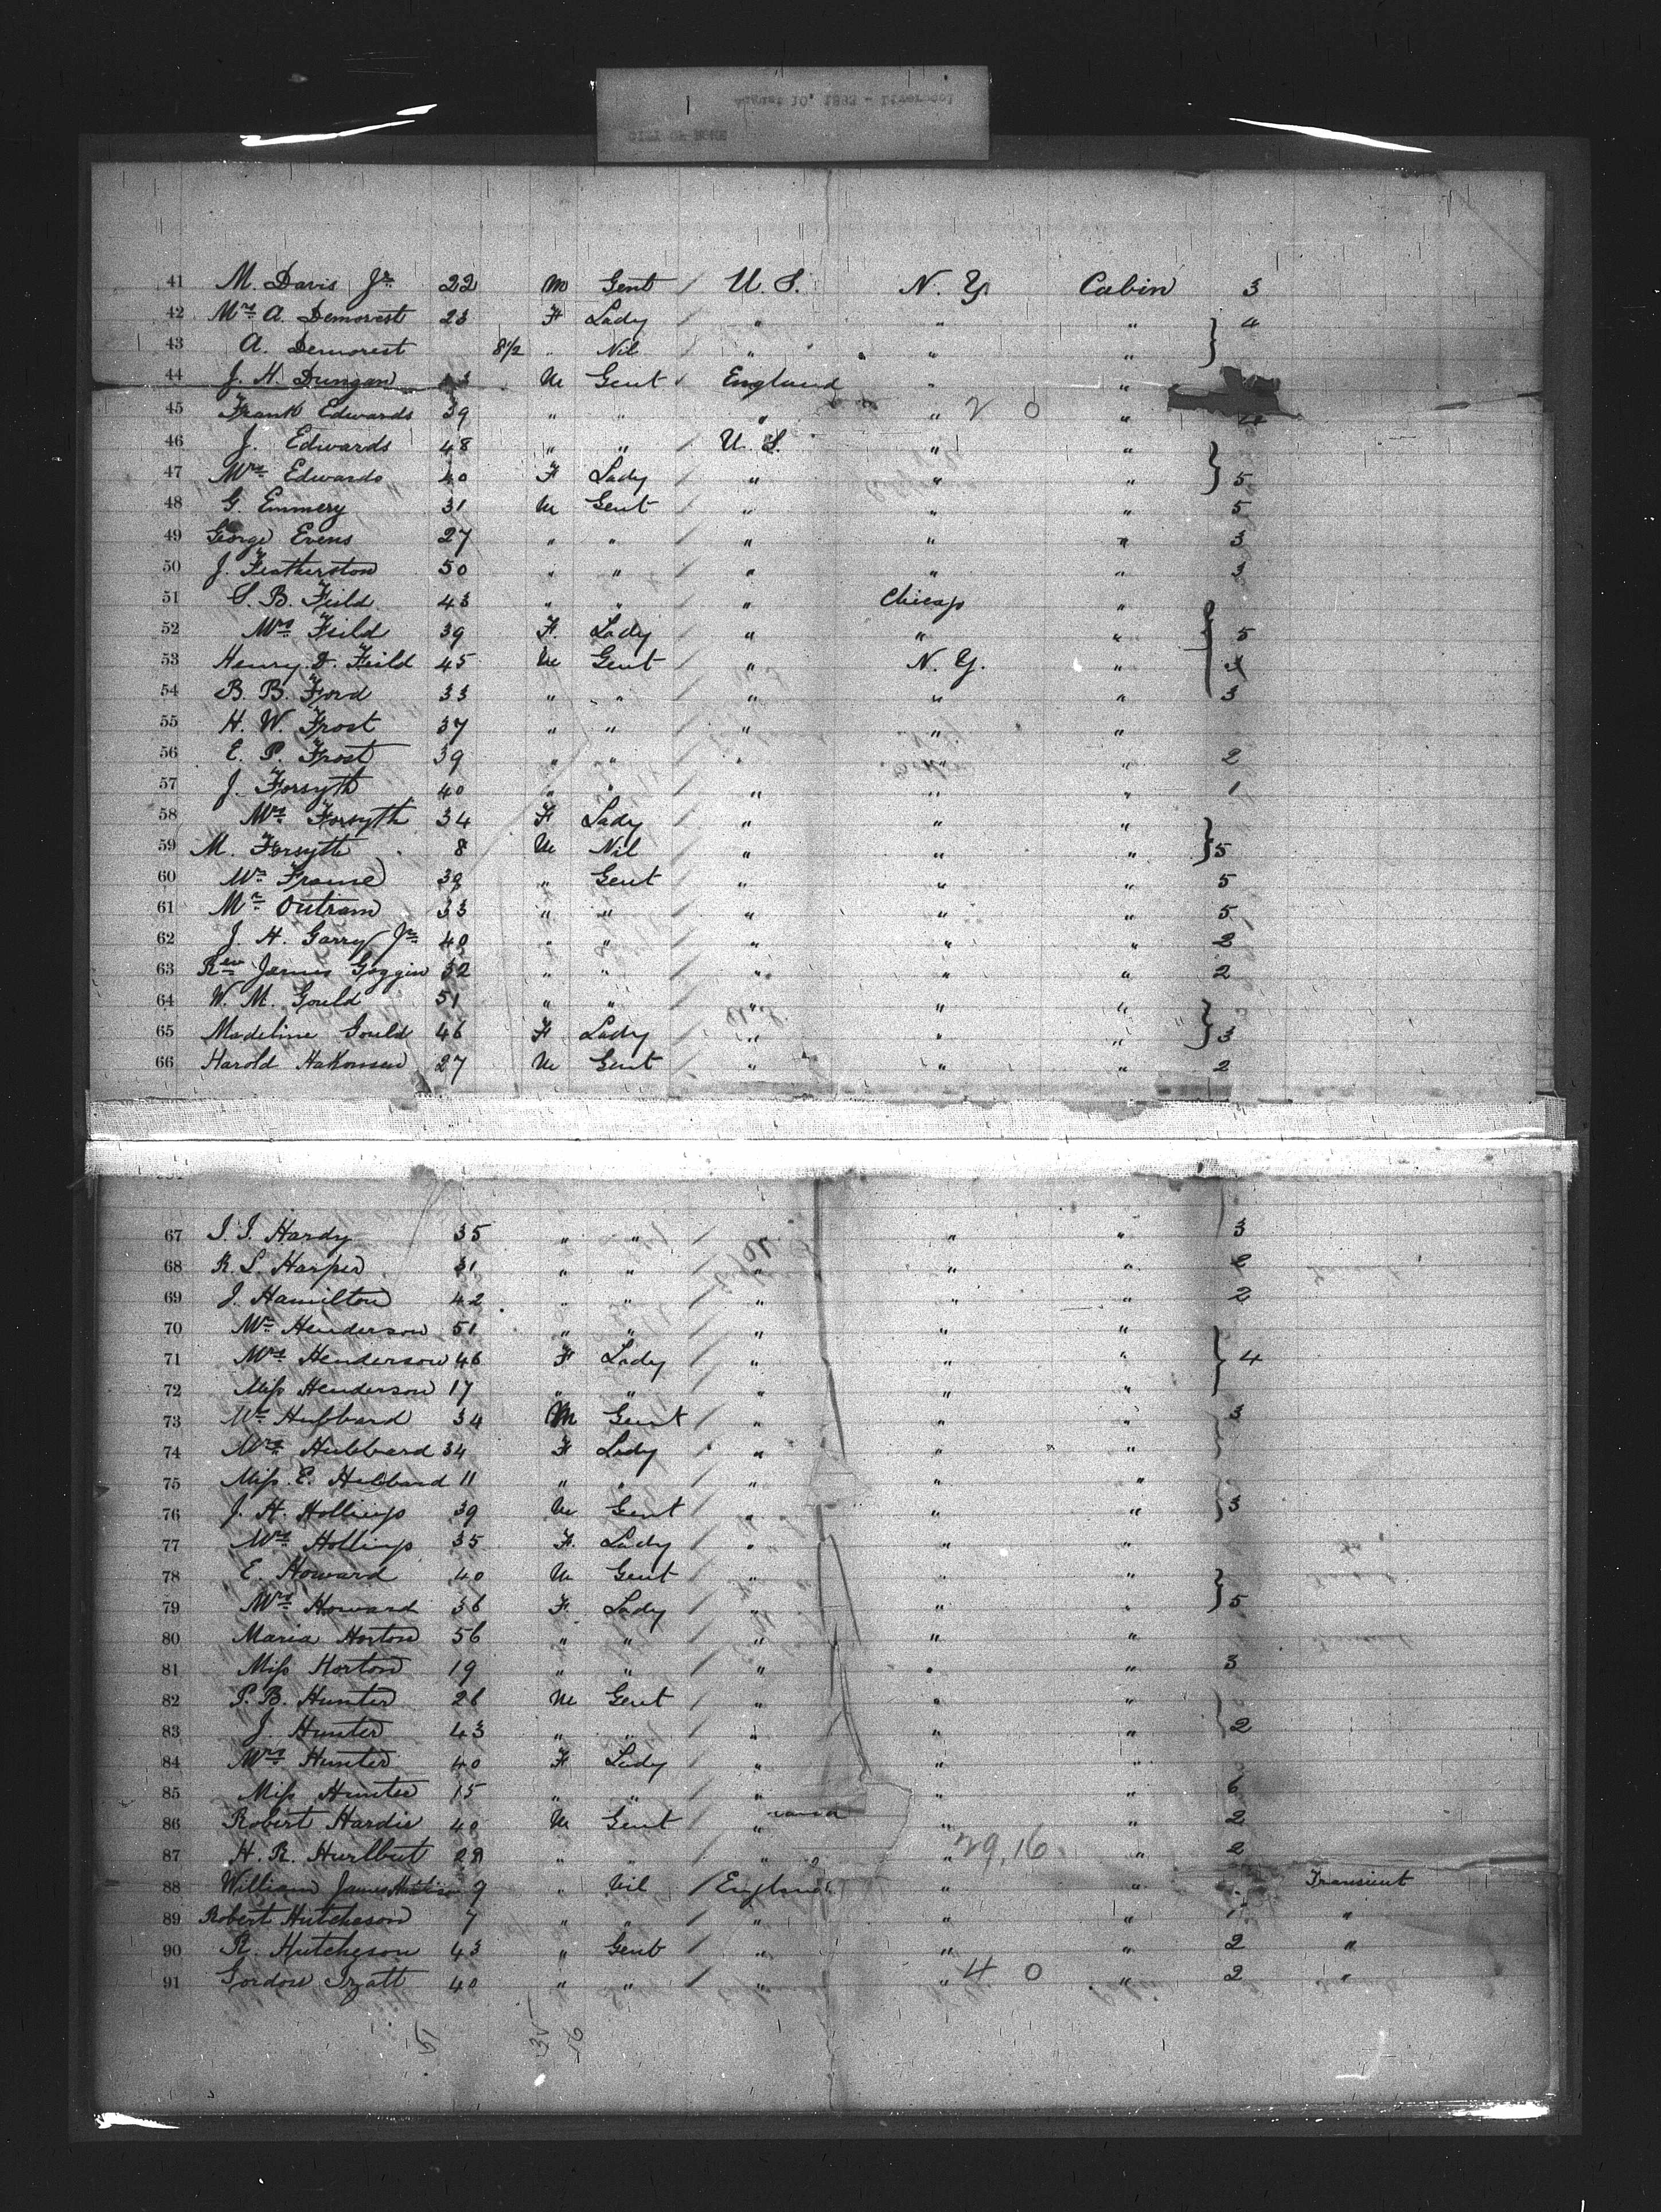 August 10, 1883 - Liverpool
CITY OF ROME
41 M. Davis Jr 22 M Gent / U. S. N. Y. Cabin 3
42 Mrs A. Demorest 23 F Lady / " " " } 4
43 A. Demorest 8 1/2 " Nil " " "
44 J. H. Dungan M Gent / England " "
45 Frank Edwards 39 " " " " 2 0 " 4
46 J. Edwards 48 " " / U. S. " "
47 Mrs Edwards 40 F Lady / " " " } 5
48 G. Emmery 31 M Gent / " " " 5
49 George Evens 27 " " / " " " 3
50 J. Featherston 50 " " / " " " 3
51 S. B. Feild 43 " " / " Chicago "
52 Mrs Feild 39 F. Lady / " " " } 5
53 Henry D. Feild 45 M Gent / " N. Y. "
54 B. B. Ford 33 " " / " " " 3
55 H. W. Frost 37 " " / " " "
56 E. P. Frost 39 " " / " " " 2
57 J. Forsyth 40 " " / " " " 1
58 Mrs Forsyth 34 F Lady / " " "
59 M. Forsyth 8 M Nil " " " } 5
60 Mr Frame 39 " Gent / " " " 5
61 Mr Outram 33 " " / " " " 5
62 J. H. Garry Jr 40 " " / " " " 2
63 Rev James Goggin 32 " " / " " " 2
64 W. M. Gould 51 " " / " " "
65 Madeline Gould 46 F Lady / " " " } 3
66 Harold Hakonsen 27 M Gent / " " " 2
67 J. J. Hardy 35 " " / " " " 3
68 R. S. Harper 31 " " / " " " 2
69 J. Hamilton 42 " " / " " " 2
70 Mr Henderson 51 " " / " " "
71 Mrs Henderson 46 F Lady / " " " } 4
72 Miss Henderson 17 " " / " " "
73 Mr Hubbard 34 M Gent / " " " 3
74 Mrs Hubbard 34 F Lady / " " "
75 Miss E. Hubbard 11 " " / " " "
76 J. H. Hollings 39 M Gent / " " " } 3
77 Mrs Hollings 35 F. Lady / " " "
78 E. Howard 40 M Gent / " " "
79 Mrs Howard 36 F. Lady / " " " } 5
80 Maria Horton 56 " " / " " "
81 Miss Horton 19 " " / " " " 3
82 P. B. Hunter 26 M Gent / " " "
83 J. Hunter 43 " " / " " " } 2
84 Mrs Hunter 40 F Lady / " " "
85 Miss Hunter 15 " " / " " " 6
86 Robert Hardie 40 M Gent / " " " 2
87 H. R. Hurlbut " " " " 29,16 " 2
88 William James 9 " Nil / England " " Transient
89 Robert Hutcheson 7 " " / " " " 1 "
90 R. Hutcheson 43 " Gent / " " " 2 "
91 Gordon Izatt 40 " " / " " 4 0 " 2 "